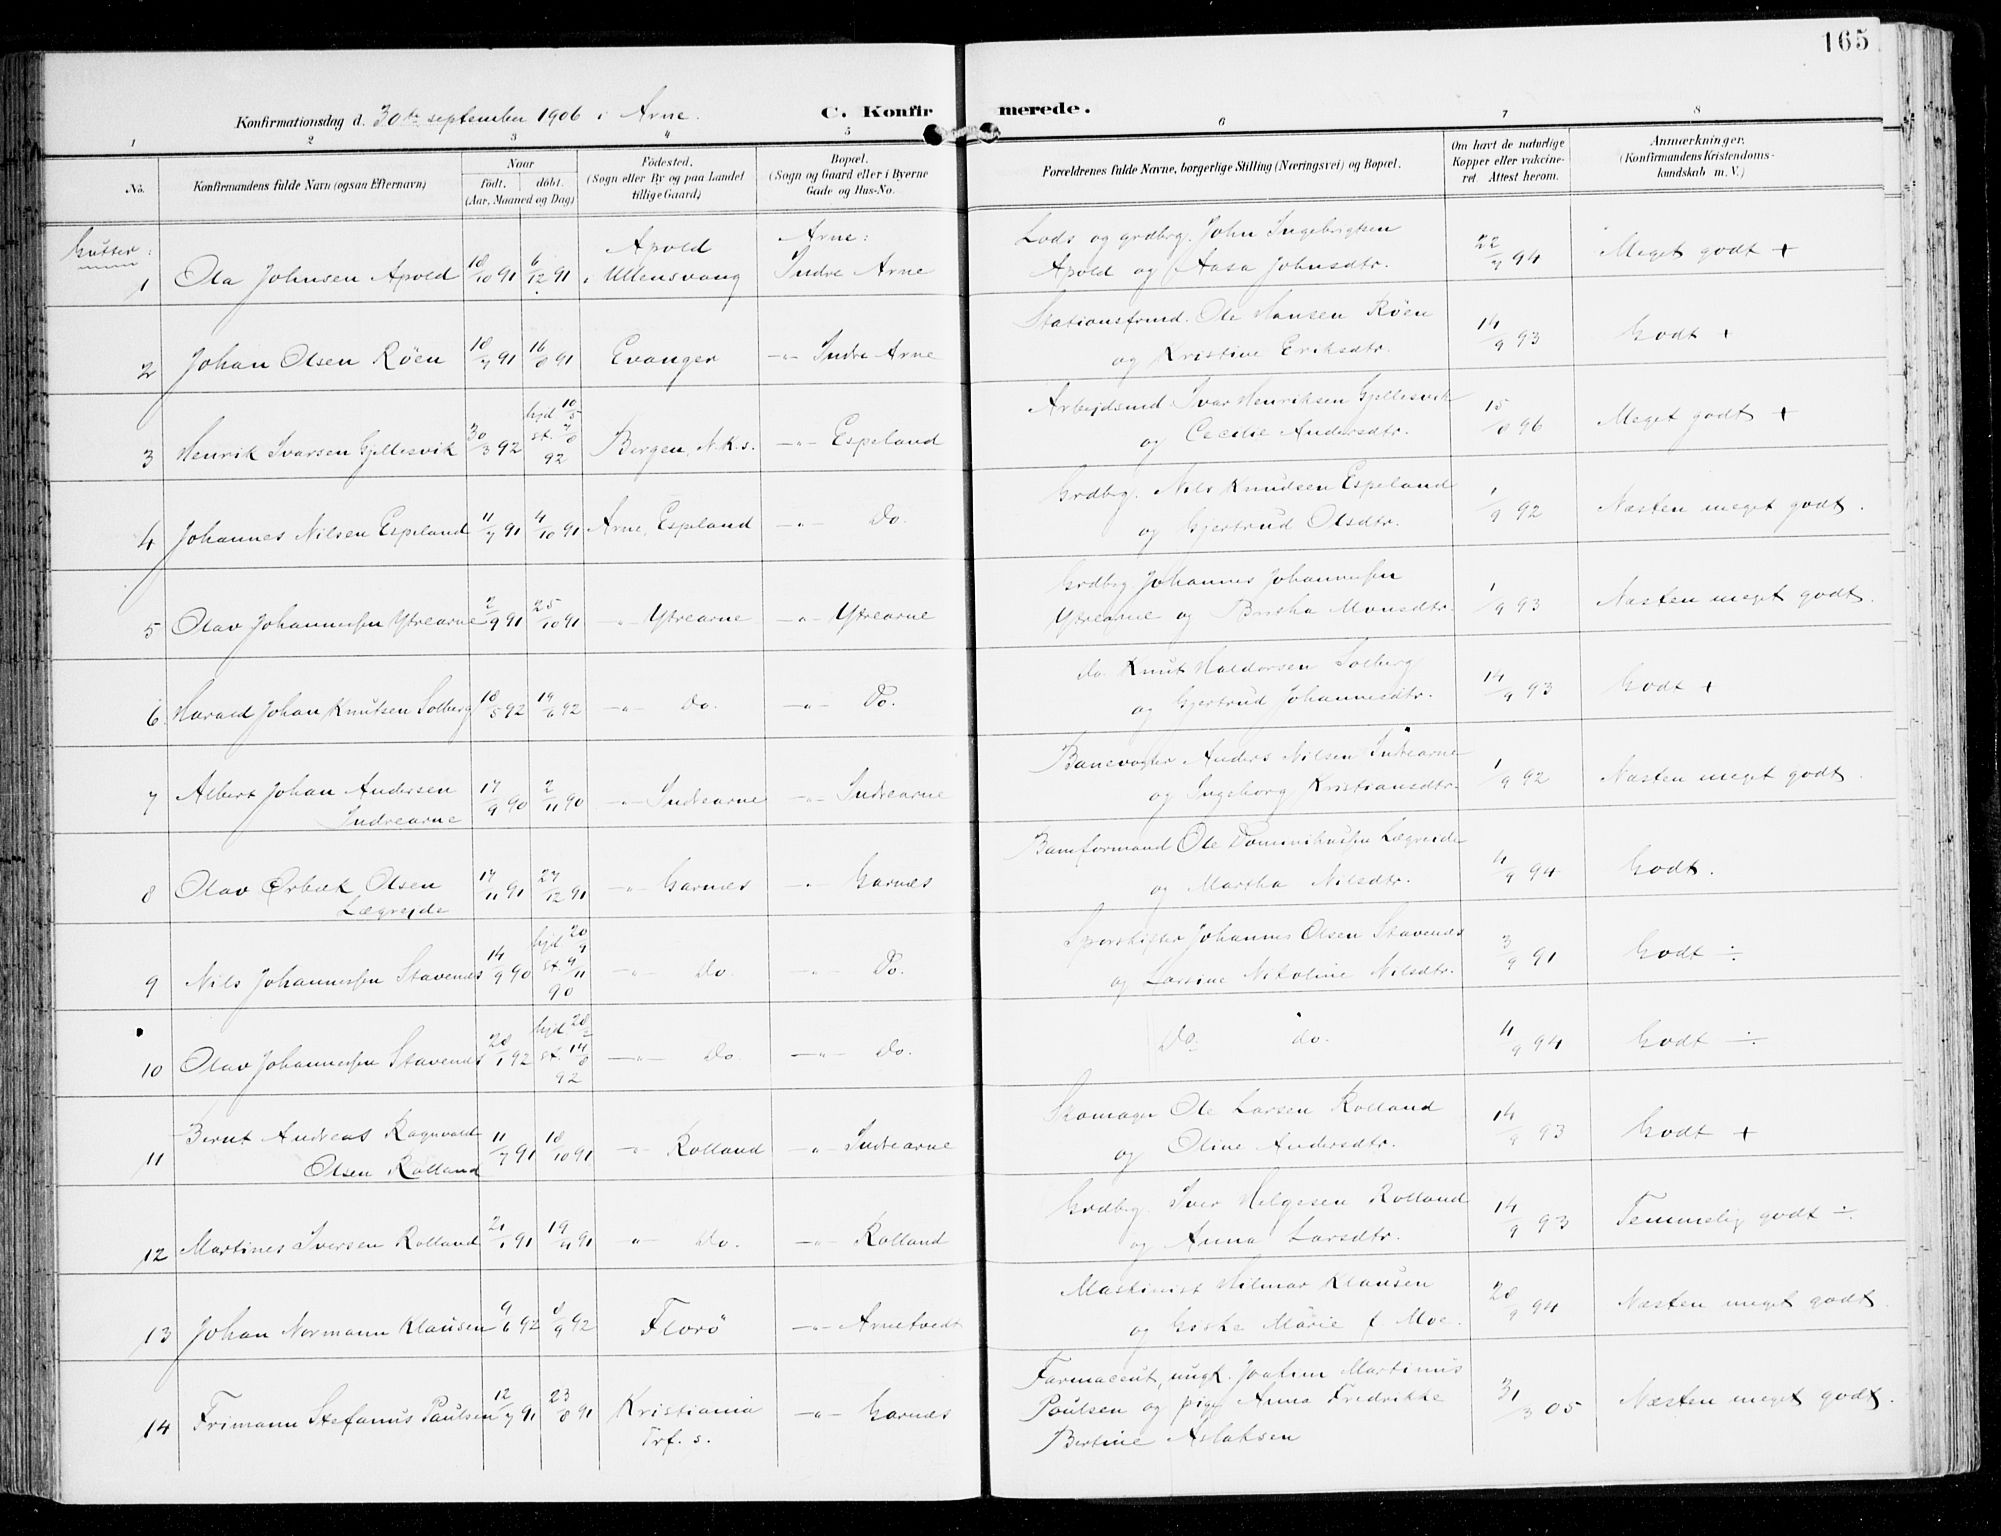 165
Konfirmationsdag d. 30te september 1906 i Arne. C. Konfirmerede.
1 2 3 4 5 6 7 8
No. Konfirmandens fulde Navn (ogsaa Efternavn) Naar født. døbt. (Aar, Maaned og Dag) Fødested. (Sogn eller By og paa Landet tillige Gaard) Bopæl. (Sogn og Gaard eller i Byerne Gade og Hus-No. Forældrenes fulde Navne, borgerlige Stilling (Næringsvei) og Bopæl. Om havt de naturlige Kopper eller vakcineret. Attest herom. Anmærkninger. (Konfirmandens Kristendomskundskab m. V.)
Gutter:
1 Ola Johnsen Apold 18/10 91 6/12 91 Apold i Ullensvang Arne: Indre Arne Lods og grdbrg. John Ingebrigtsen Apold og Aasa Johnsdtr. 22/7 94 Meget godt +
2 Johan Olsen Røen 18/7 91 16/8 91 Evanger -"- Indre Arne Stationsfmd. Ole Hansen Røen og Kristine Eriksdtr. 14/9 93 Godt +
3 Henrik Ivarsen Gjellesvik 30/3 92 hjd 10/5 st. 7/8 92 Bergen, N.K.s. -"- Espeland Arbejdsmd Ivar Henriksen Gjellesvik og Cecilie Andersdtr. 15/8 96 Meget godt +
4 Johannes Nilsen Espeland 11/7 91 4/10 91 Arne, Espeland -"- Do. Grdbrg. Nils Knudsen Espeland og Gjertrud Olsdtr. 1/9 92 Næsten meget godt.
5 Olav Johannessen Ytrearne 2/9 91 25/10 91 -"- Ytrearne -"- Ytrearne Grdbrg Johannes Johannessen Ytrearne og Britha Monsdtr. 1/9 93 Næsten meget godt.
6 Harald Johan Knutsen Solberg 18/5 92 19/6 92 -"- Do. -"- Do. do. Knut Haldorsen Solberg og Gjertrud Johannesdtr. 14/9 93 Godt +
7 Albert Johan Andersen Indrearne 17/9 90 2/11 90 -"- Indrearne -"- Indrearne Banevogter Anders Nilsen Indrearne og Ingeborg Kristiansdtr. 1/9 92 Næsten meget godt.
8 Olav Ørbæk Olsen Lægreide 17/11 91 27/12 91 -"- Garnæs -"- Garnæs Baneformand Ole Dominikussen Lægreide og Martha Nilsdtr. 4/9 94 Godt.
9 Nils Johannessen Stavenes 14/9 90 hjd 20/9 st. 9/11 90 -"- Do. -"- Do. Sporskifter Johannes Olsen Stavenes og Larsine Nikoline Nilsdtr. 3/9 91 Godt ÷
10 Olav Johannessen Stavenes 28/1 92 hjd 28/2 st. 14/8 92 -"- Do. -"- Do. Do. do. 4/9 94 Godt ÷
11 Bernt Andreas Ragnvald Olsen Rolland 11/7 91 18/10 91 -"- Rolland -"- Indrearne Skomager Ole Larsen Rolland og Oline Andersdtr. 14/9 93 Godt +
12 Martines Iversen Rolland 21/1 91 19/4 91 -"- Do. -"- Rolland Grdbrg. Iver Helgesen Rolland og Anna Larsdtr. 14/9 93 Temmelig godt ÷
13 Johan Normann Klausen 9/6 92 8/9 92 Florø -"- Arnetvedt Maskinist Hilmar Klausen og Marie f Moe. 28/9 94 Næsten meget godt.
14 Frimann Stefanus Paulsen 12/7 91 23/8 91 Kristiania Trf. s. -"- Garnæs Farmaceut, ungk. Joakim Martinus Paulsen og pige Anna Fredrikke Bertine Aslaksen 31/3 05 Næsten meget godt.